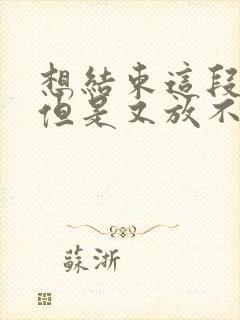 想結束這段
但是又放不
蘇浙